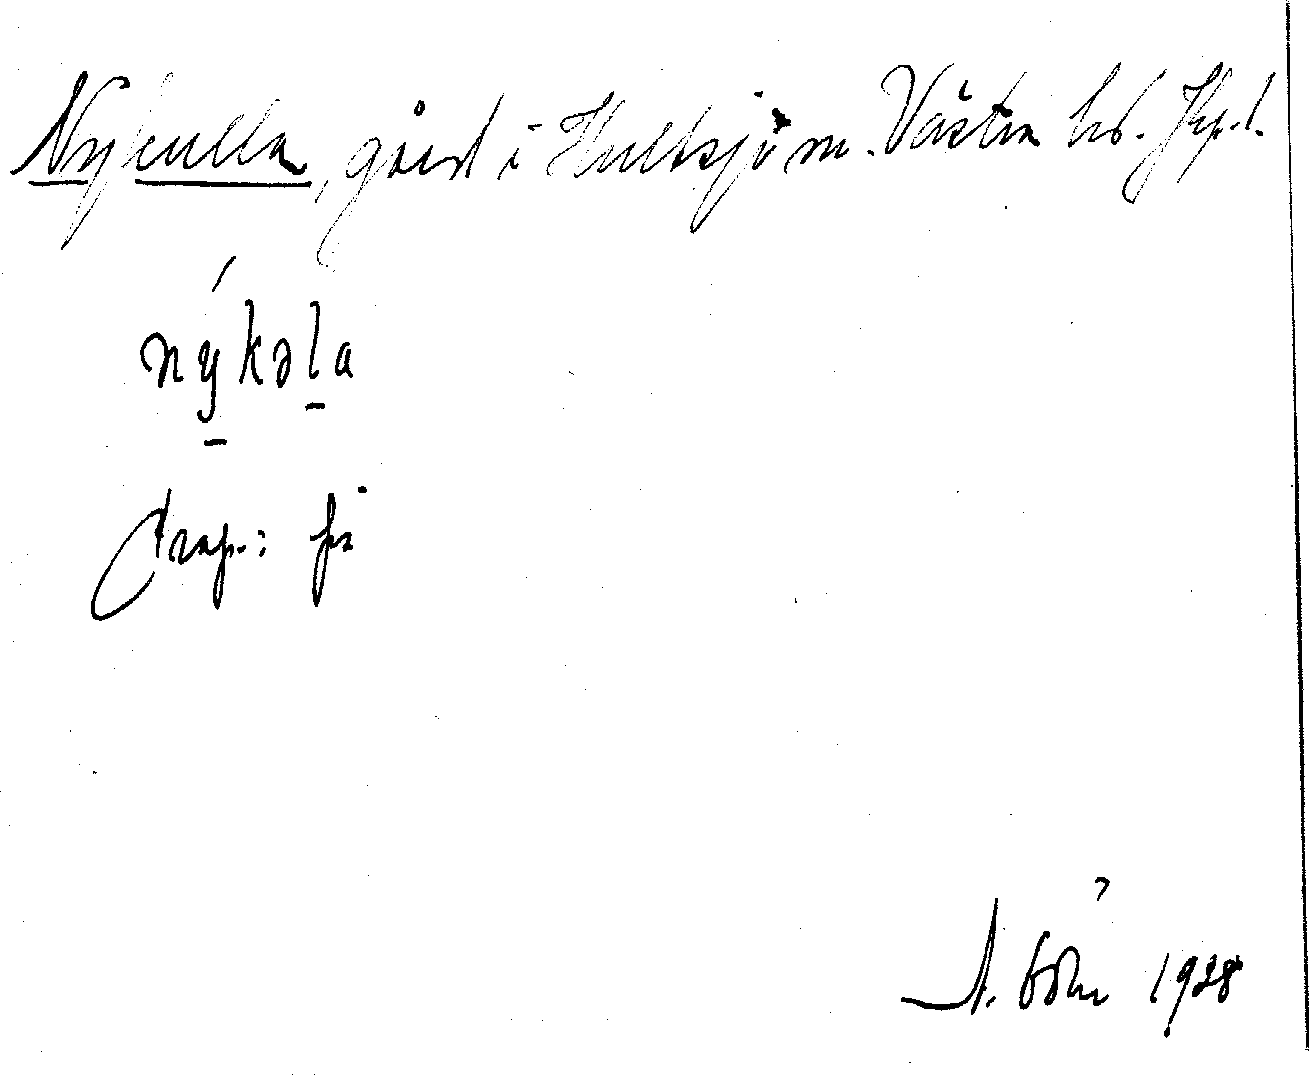 Nykulla, gård i Hultsjö sn. Västra hd. Jkp.l.
nýkəla
Prep.: på
A. 1928